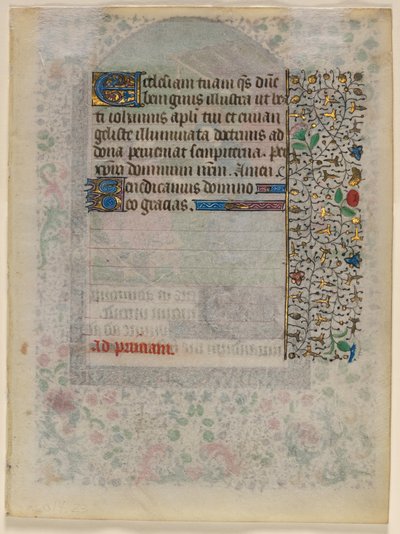 Ecclesiam tuam q̄s dn̄e
benignus illustra ut be
ti iohannis apl̄i tui et euuan
geliste illuminata doctrinis ad
dona perueniat sempiterna. Per
xp̄m dominum nrm̄. Amen.
Benedicamus domino
Deo gracias.
Ad primam.